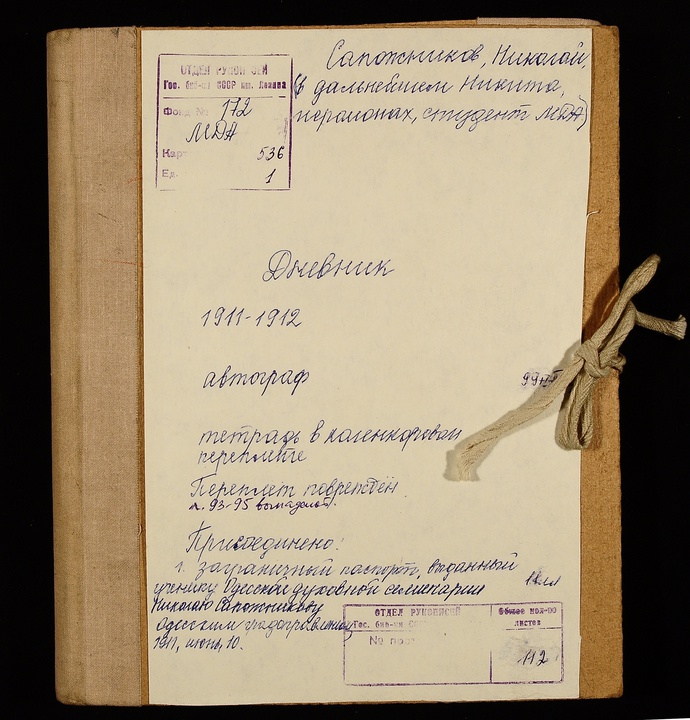 ОТДЕЛ РУКОПИСЕЙ
Гос. биб-ки СССР им. Ленина
Фонд № 172
МДА
Карт. 536
Ед. 1
Сапожников, Николай,
(в дальнейшем Никита,
иеромонах, студент МДА)
Дневник
1911-1912
автограф
тетрадь в каленкоровом
переплете
Переплет поврежден
л. 93-95 выпадают.
Присоединено:
1. заграничный паспорт, выданный
ученику Одесской духовной семинарии
Николаю Сапожникову
Одесским градоправлением
1911, июнь, 10.
ОТДЕЛ РУКОПИСЕЙ
Гос. биб-ки
№ пос
Общее кол-во
листов
112